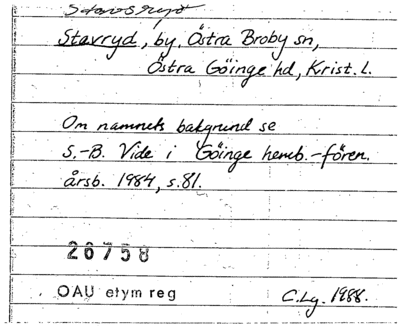 Stavryd, by, Östra Broby sn,
Östra Göinge hd, Krist. l.
Om namnets bakgrund se
S.-B. Vide i Göinge hemb.-fören.
årsb. 1984, s. 81.
26758
OAU etym reg
C. Lg. 1988.